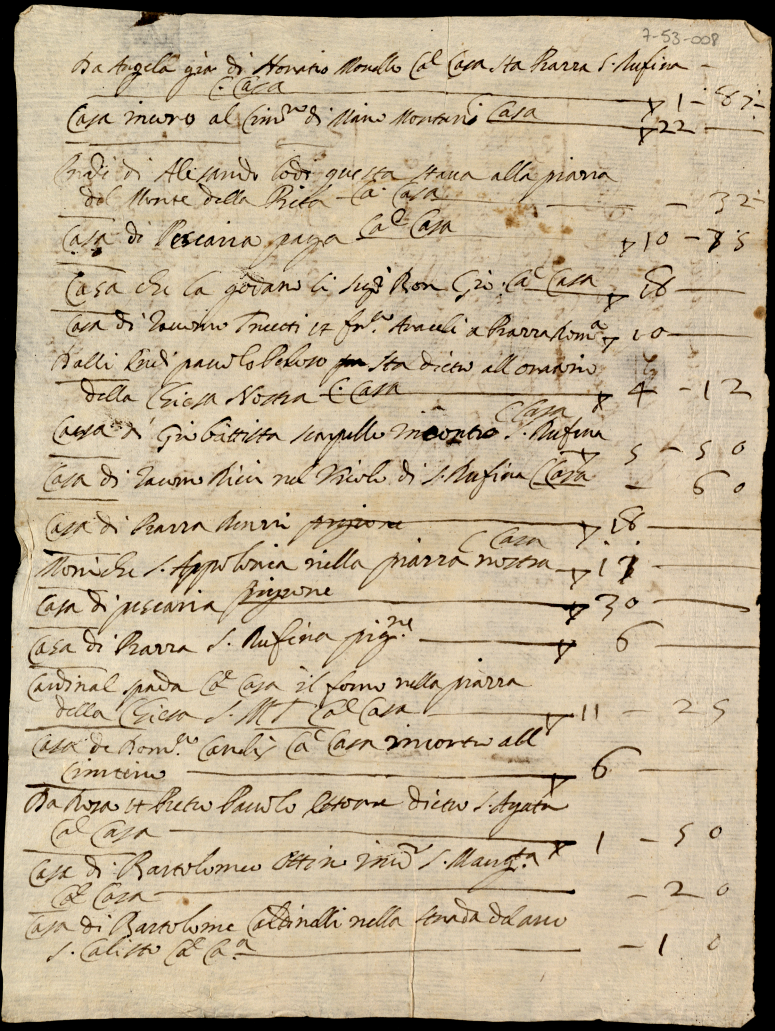 7-53-008
Da Angela già di Horatio Monello Cal Casa sta Piazza S. Rufina -
C. Casa ▽ 1 - 87 -
Casa incoro al Cim.ro di Mario Monteni Casa ▽ 22
Eredi di Alesandro Codi questa staua alla piazza
del Monte della Pietà Ca. Casa - 32 -
Casa di Pescaria paga Cal Casa ▽ 10 - 75
Casa che la godano li Sig.ri Gio. Cal Casa ▽ 18
Casa di Iacomo et Araceli a Piazza Roma ▽ 10
Dalli Eredi pauolo Peloso sta dietro all oratorio
della Chiesa Nostra C. Casa ▽ 4 - 12
C Casa
Casa di Gio battista scarpello incontro S. Rufina
▽ 5 - 50
Casa di Iacomo Ricci nel Vicolo di S. Rufina Casa - 60
Casa di Piazza pigione ▽ 18
C Casa
Moniche S. Appolonia nella piazza nostra ▽ 17
Casa di pescaria pigione ▽ 30
Casa di Piazza S. Rufina pig.ne ▽ 6
Cardinal spada Cal Casa il forno nella piazza
della Chiesa S. M T Cal Casa ▽ 11 - 25
Casa de Dom.co Cal Casa incontro all
Cimiterio ▽ 6
Da Rosa et Pietro Pauolo dietro S. Agata
Cal Casa ▽ 1 - 50
Casa di Bartolomeo Ottino S. Marg.ta
Cal Casa - 20
Casa di Bartolome nella strada del arco
S. Calisto Cal Ca.a - 10